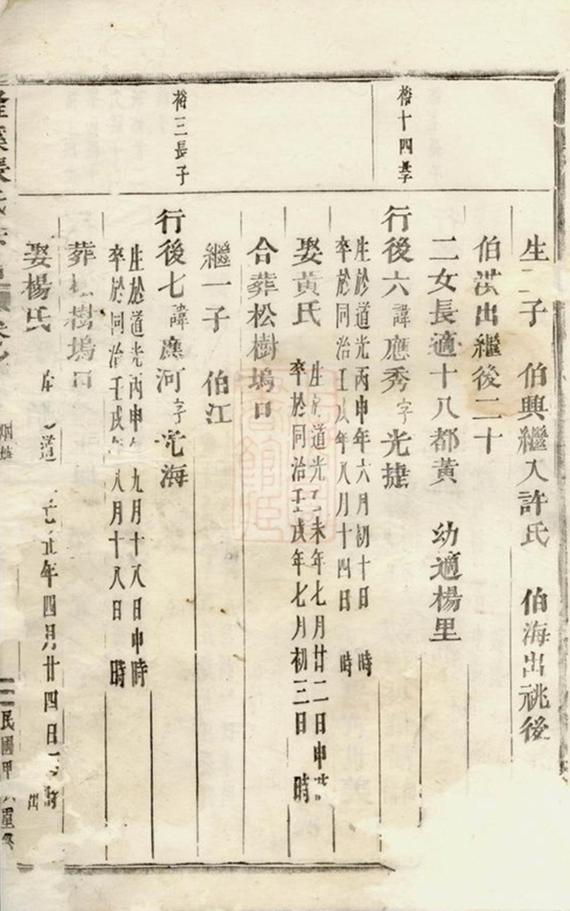 生 子 伯興繼入許氏 伯海出祧後
伯洪出繼後二十
二女長適十八都黃 幼適楊里
裕十四 子
行後六諱應秀字光捷
生於道光丙申年六月初十日 時
卒於同治壬戌年八月十四日 時
娶黃氏
生於道光 未年七月廿二日申時
卒於同治壬戌年七月初三日 時
合葬松樹塢口
繼一子 伯江
裕三長子
行後七諱應河字 海
生於道光丙申年九月十八日申時
卒於同治壬戌年八月十八日 時
葬松樹塢口
娶楊氏
道 年四月廿四日 時
張氏
民國甲 重修